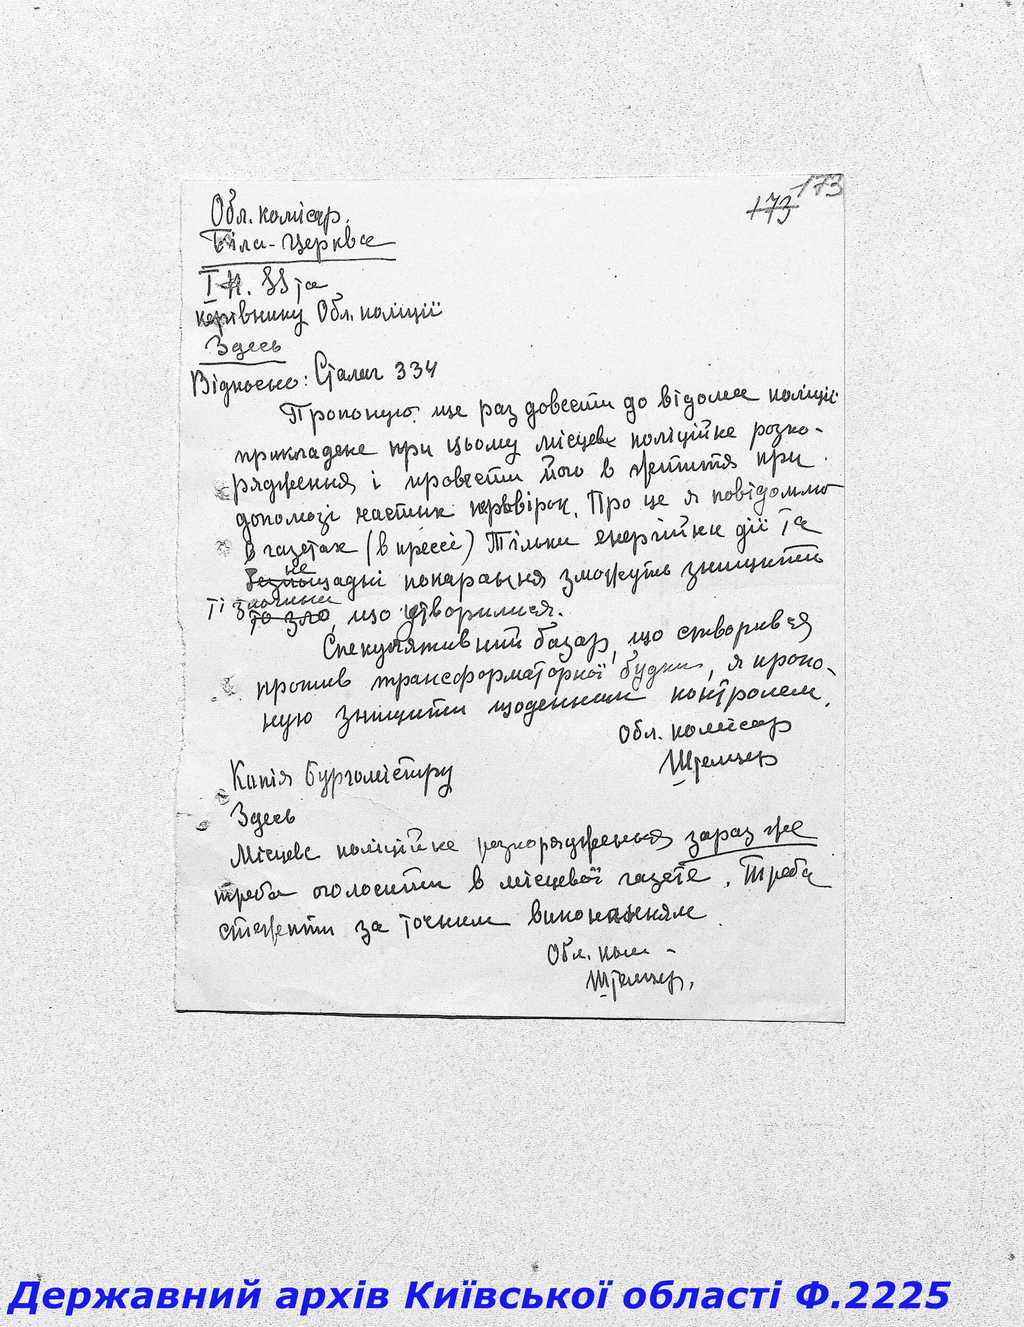 173
173
Обл. комісар.
Біла-Церква
І Н. SS та
керівнику Обл. поліції
Здесь
Відносно: Сталаг 334
Пропоную ще раз довести до відома поліції
прикладене при цьому місцеве поліційне розпо-
рядження і провести його в життя при
допомозі частих перевірок. Про це я повідомлю
в газетах (в прессі) Тільки енергійні дії та
не
безпощадні покарання зможуть знищити
ті злочини
то зло, що утворилися.
Спекулятивний базар, що створився
против трансформаторної будки, я пропо-
ную знищити щоденним контролем.
Обл. комісар
Штельцер
Копія Бургомістру
Здесь
Місцеве поліційне розпорядження зараз же
треба оголосити в місцевої газете. Треба
стежити за точним виконанням
Обл. ком -
Штельцер.
Державний архів Київської області Ф.2225